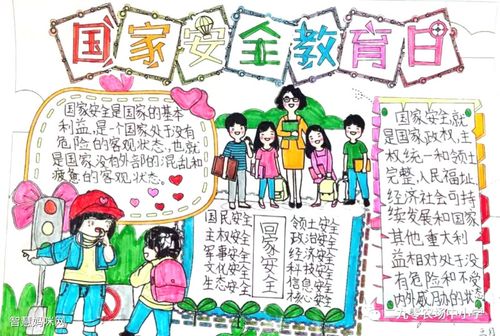 国家安全教育日
国家安全是国家的基本
利益,是一个国家处于没有
危险的客观状态,也就
是国家没有外部的混乱和
疲惫的客观状态。
国民安全
主权安全
军事安全
文化安全
生态安全
国家安全
领土安全
政治安全
经济安全
科技安全
信息安全
核心安全
国家安全,就
是国家政权,主
权统一和领土
完整,人民福祉,
经济社会可持
续发展和国家
其他,重大利
益相对处于没
有危险和不受
内外威胁的状态
智慧妈咪网